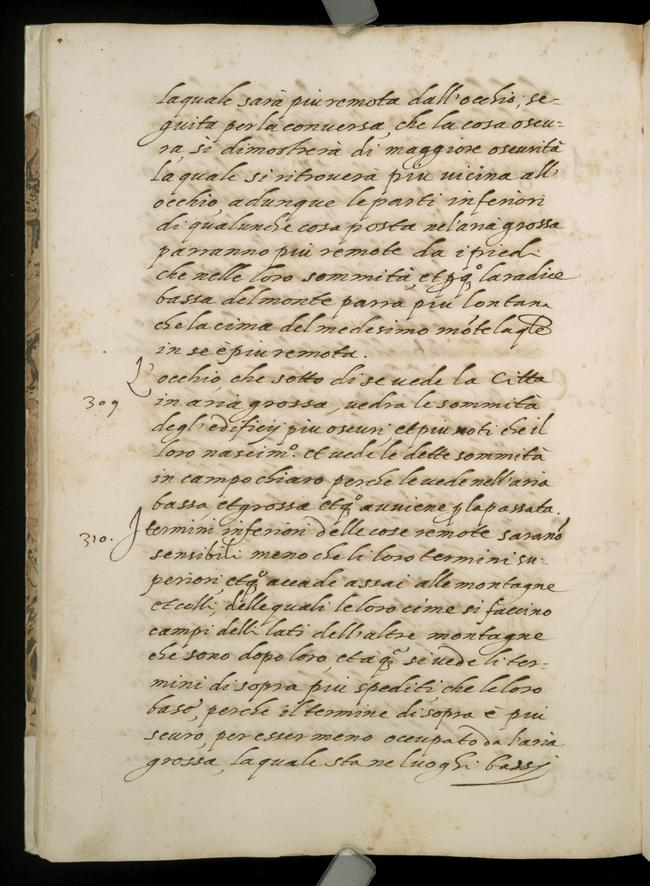 laquale sarà piu remota dall'occhio, se-
guita per la conuersa, che la cosa oscu-
ra, si dimostrerà di maggiore oscurità
la quale si ritrouerà piu uicina all'
occhio, adunque le parti inferiori
di qualunche cosa posta nel'aria grossa
parranno piu remote da i piedi
che nelle loro sommità, et p q.o la radice
bassa del monte parra piu lontana
che la cima del medesimo mõte laqle
in se è piu remota.
L'occhio, che sotto di se uede la Citta
309 in aria grossa, uedra le sommità
degl'edificij piu oscuri, et piu noti che il
loro nascim.o et uede le dette sommità
in campo chiaro perche le uede nell'aria
bassa et grossa et q.o auuiene p la passata.
310. I termini inferiori delle cose remote saranõ
sensibili meno che li loro termini su-
periori, et q.o accade assai alle montagne
et colli, delle quali le loro cime si faccino
campi delli lati dell'altre montagne
che sono dopo loro, et a q.a si uede li ter-
mini di sopra piu spediti, che le loro
base, perche il termine di sopra è piu
scuro, per esser meno occupato da l'aria
grossa, la quale sta ne luoghi bassi